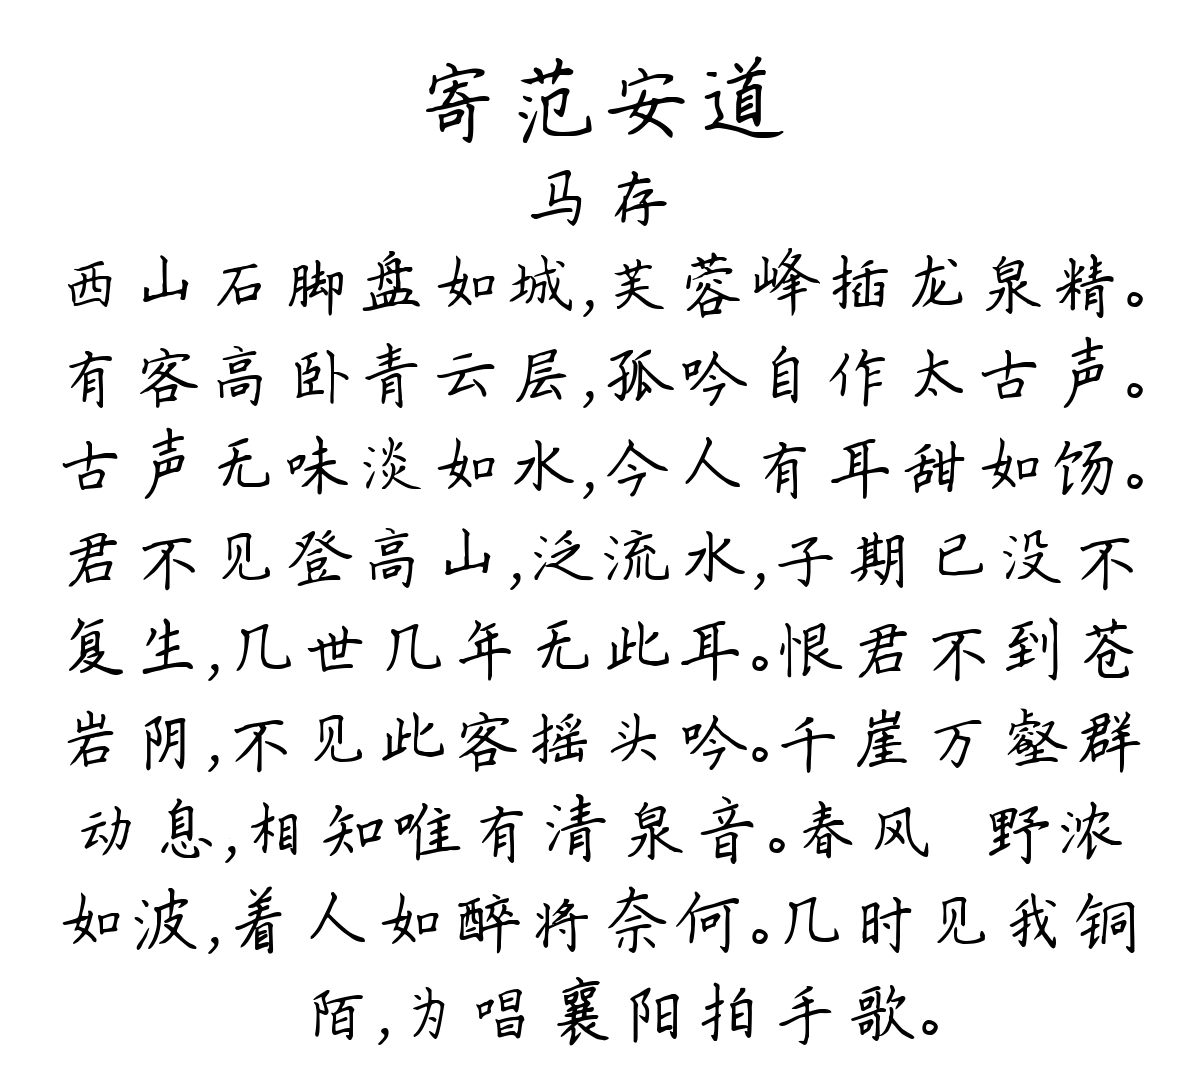 寄范安道
马存
西山石脚盘如城,芙蓉峰插龙泉精。
有客高卧青云层,孤吟自作太古声。
古声无味淡如水,今人有耳甜如饧。
君不见登高山,泛流水,子期已没不
复生,几世几年无此耳。恨君不到苍
岩阴,不见此客摇头吟。千崖万壑群
动息,相知唯有清泉音。春风 野浓
如波,着人如醉将奈何。几时见我铜
陌,为唱襄阳拍手歌。